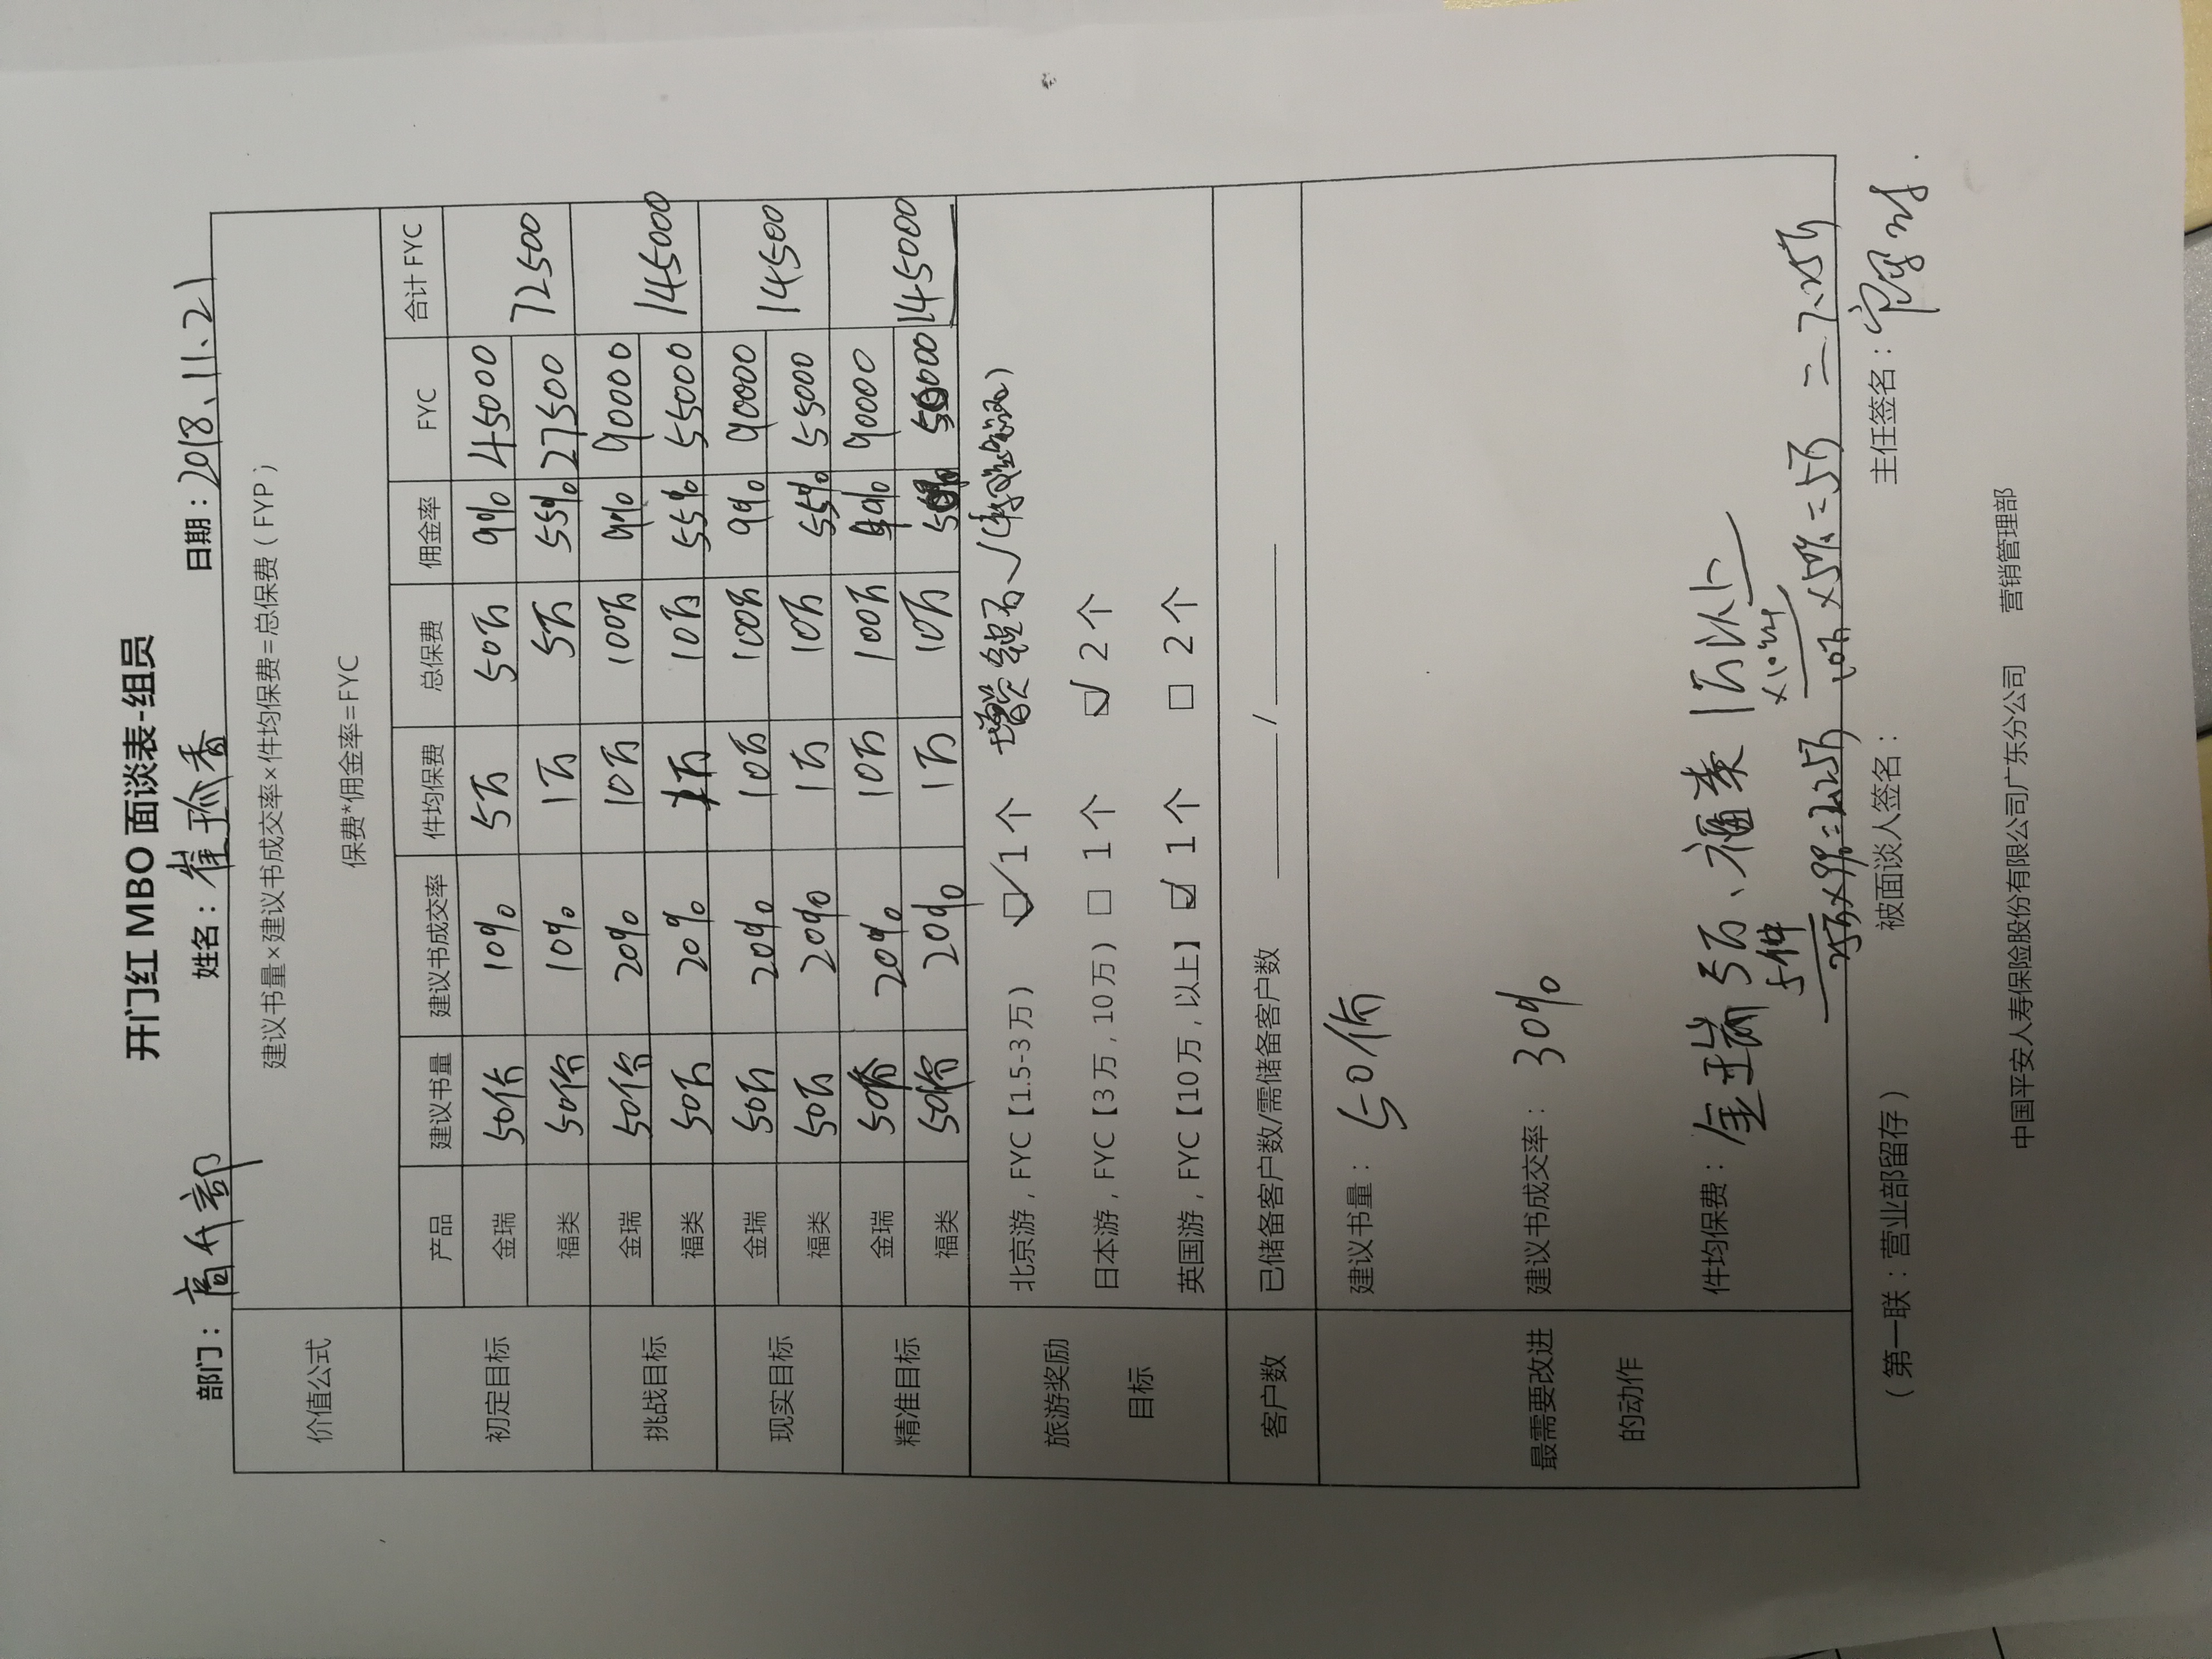 开门红 MBO 面谈表-组员
部门：商代部 姓名：崔珍香 日期：2018.11.21
价值公式 建议书量×建议书成交率×件均保费=总保费（FYP；
保费*佣金率=FYC
产品 建议书量 建议书成交率 件均保费 总保费 佣金率 FYC 合计 FYC
初定目标 金瑞 50份 10% 5万 50万 9% 45000 72500
福类 50份 10% 1万 5万 55% 27500
挑战目标 金瑞 50份 20% 10万 100万 9% 90000 145000
福类 50万 20% 1万 10万 55% 55000
现实目标 金瑞 50万 20% 10万 100万 9% 90000 14500
福类 50万 20% 1万 10万 55% 55000
精准目标 金瑞 50份 20% 10万 100万 9% 90000 145000
福类 50份 20% 1万 10万 000
旅游奖励目标 北京游，FYC【1.5-3万） ☑1个
日本游，FYC【3万，10万） □ 1个 ☑ 2个
英国游，FYC【10万，以上】 ☑ 1个 □ 2个
客户数 已储备客户数/需储备客户数 ______/______
最需要改进的动作 建议书量： 50份
建议书成交率： 30%
件均保费： 金瑞5万、福类1万以上
5件 ×10件
25万×9%=2.25万 10万×50%=5万 =7.25万
（第一联：营业部留存） 被面谈人签名： 主任签名：
中国平安人寿保险股份有限公司广东分公司 营销管理部